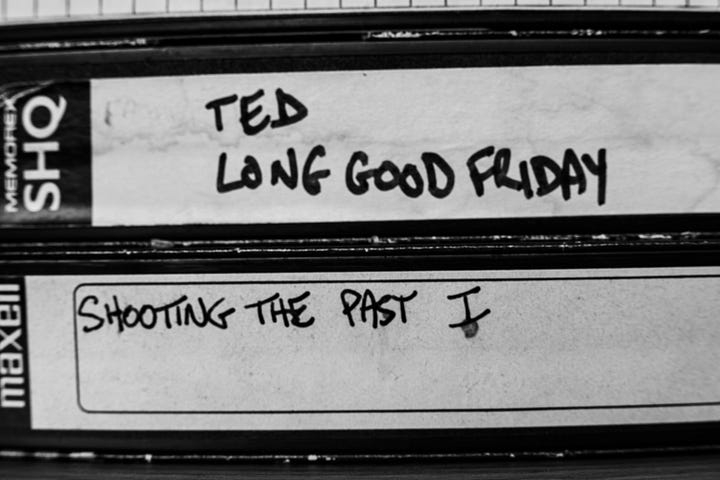 MEMOREX
SHQ
TED
LONG GOOD FRIDAY
maxell
SHOOTING THE PAST I